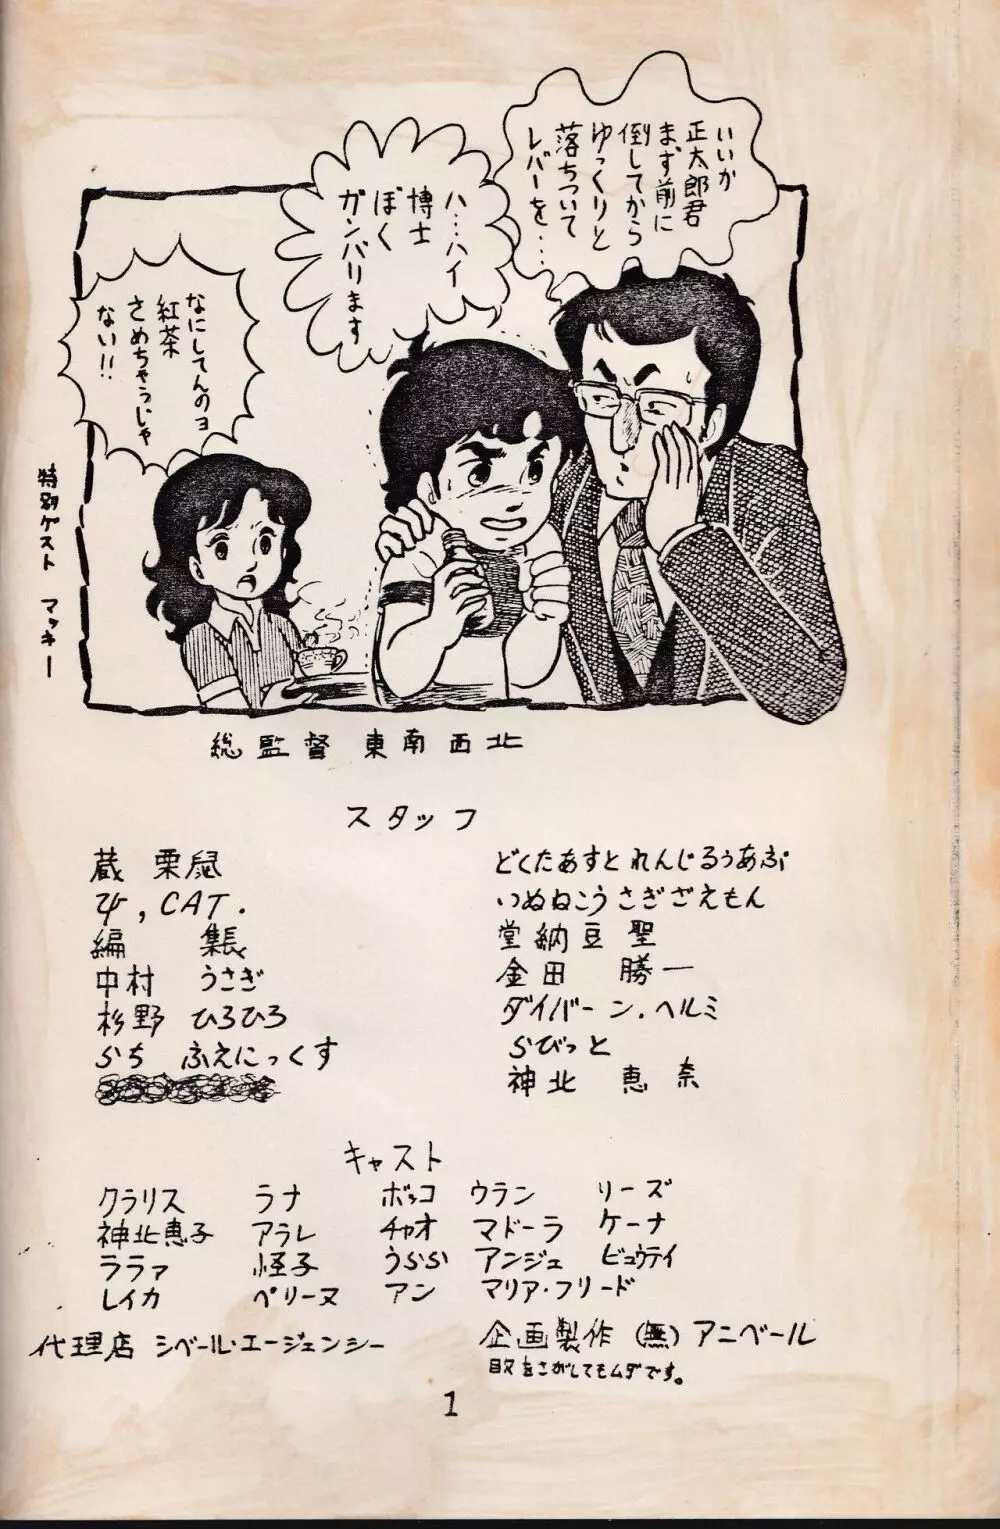 いいか
正太郎君
まず前に
倒してから
ゆっくりと
落ちついて
レバーを・・・
ハ・・・ハイ
博士
ぼく
ガンバリます
なにしてんのョ
紅茶
さめちゃうじゃ
ない!!
特別ゲスト マッキー
総監督 東南西北
スタッフ
蔵 栗鼠
, CAT.
編 集長
中村 うさぎ
杉野 ひろひろ
らち ふえにっくす
どくたあすとれんじるぅあぶ
いぬねこうさぎざえもん
堂納豆 聖
金田 勝一
ダイバーン.ヘルミ
らびっと
神北 恵奈
キャスト
クラリス ラナ ボッコ ウラン リーズ
神北恵子 アラレ チャオ マドーラ ケーナ
ララァ 怪子 うらら アンジェ ビュウティ
レイカ ペリーヌ アン マリア・フリード
代理店 シベール・エージェンシー
企画製作 (無)アニベール
をさがしてもムダです。
1